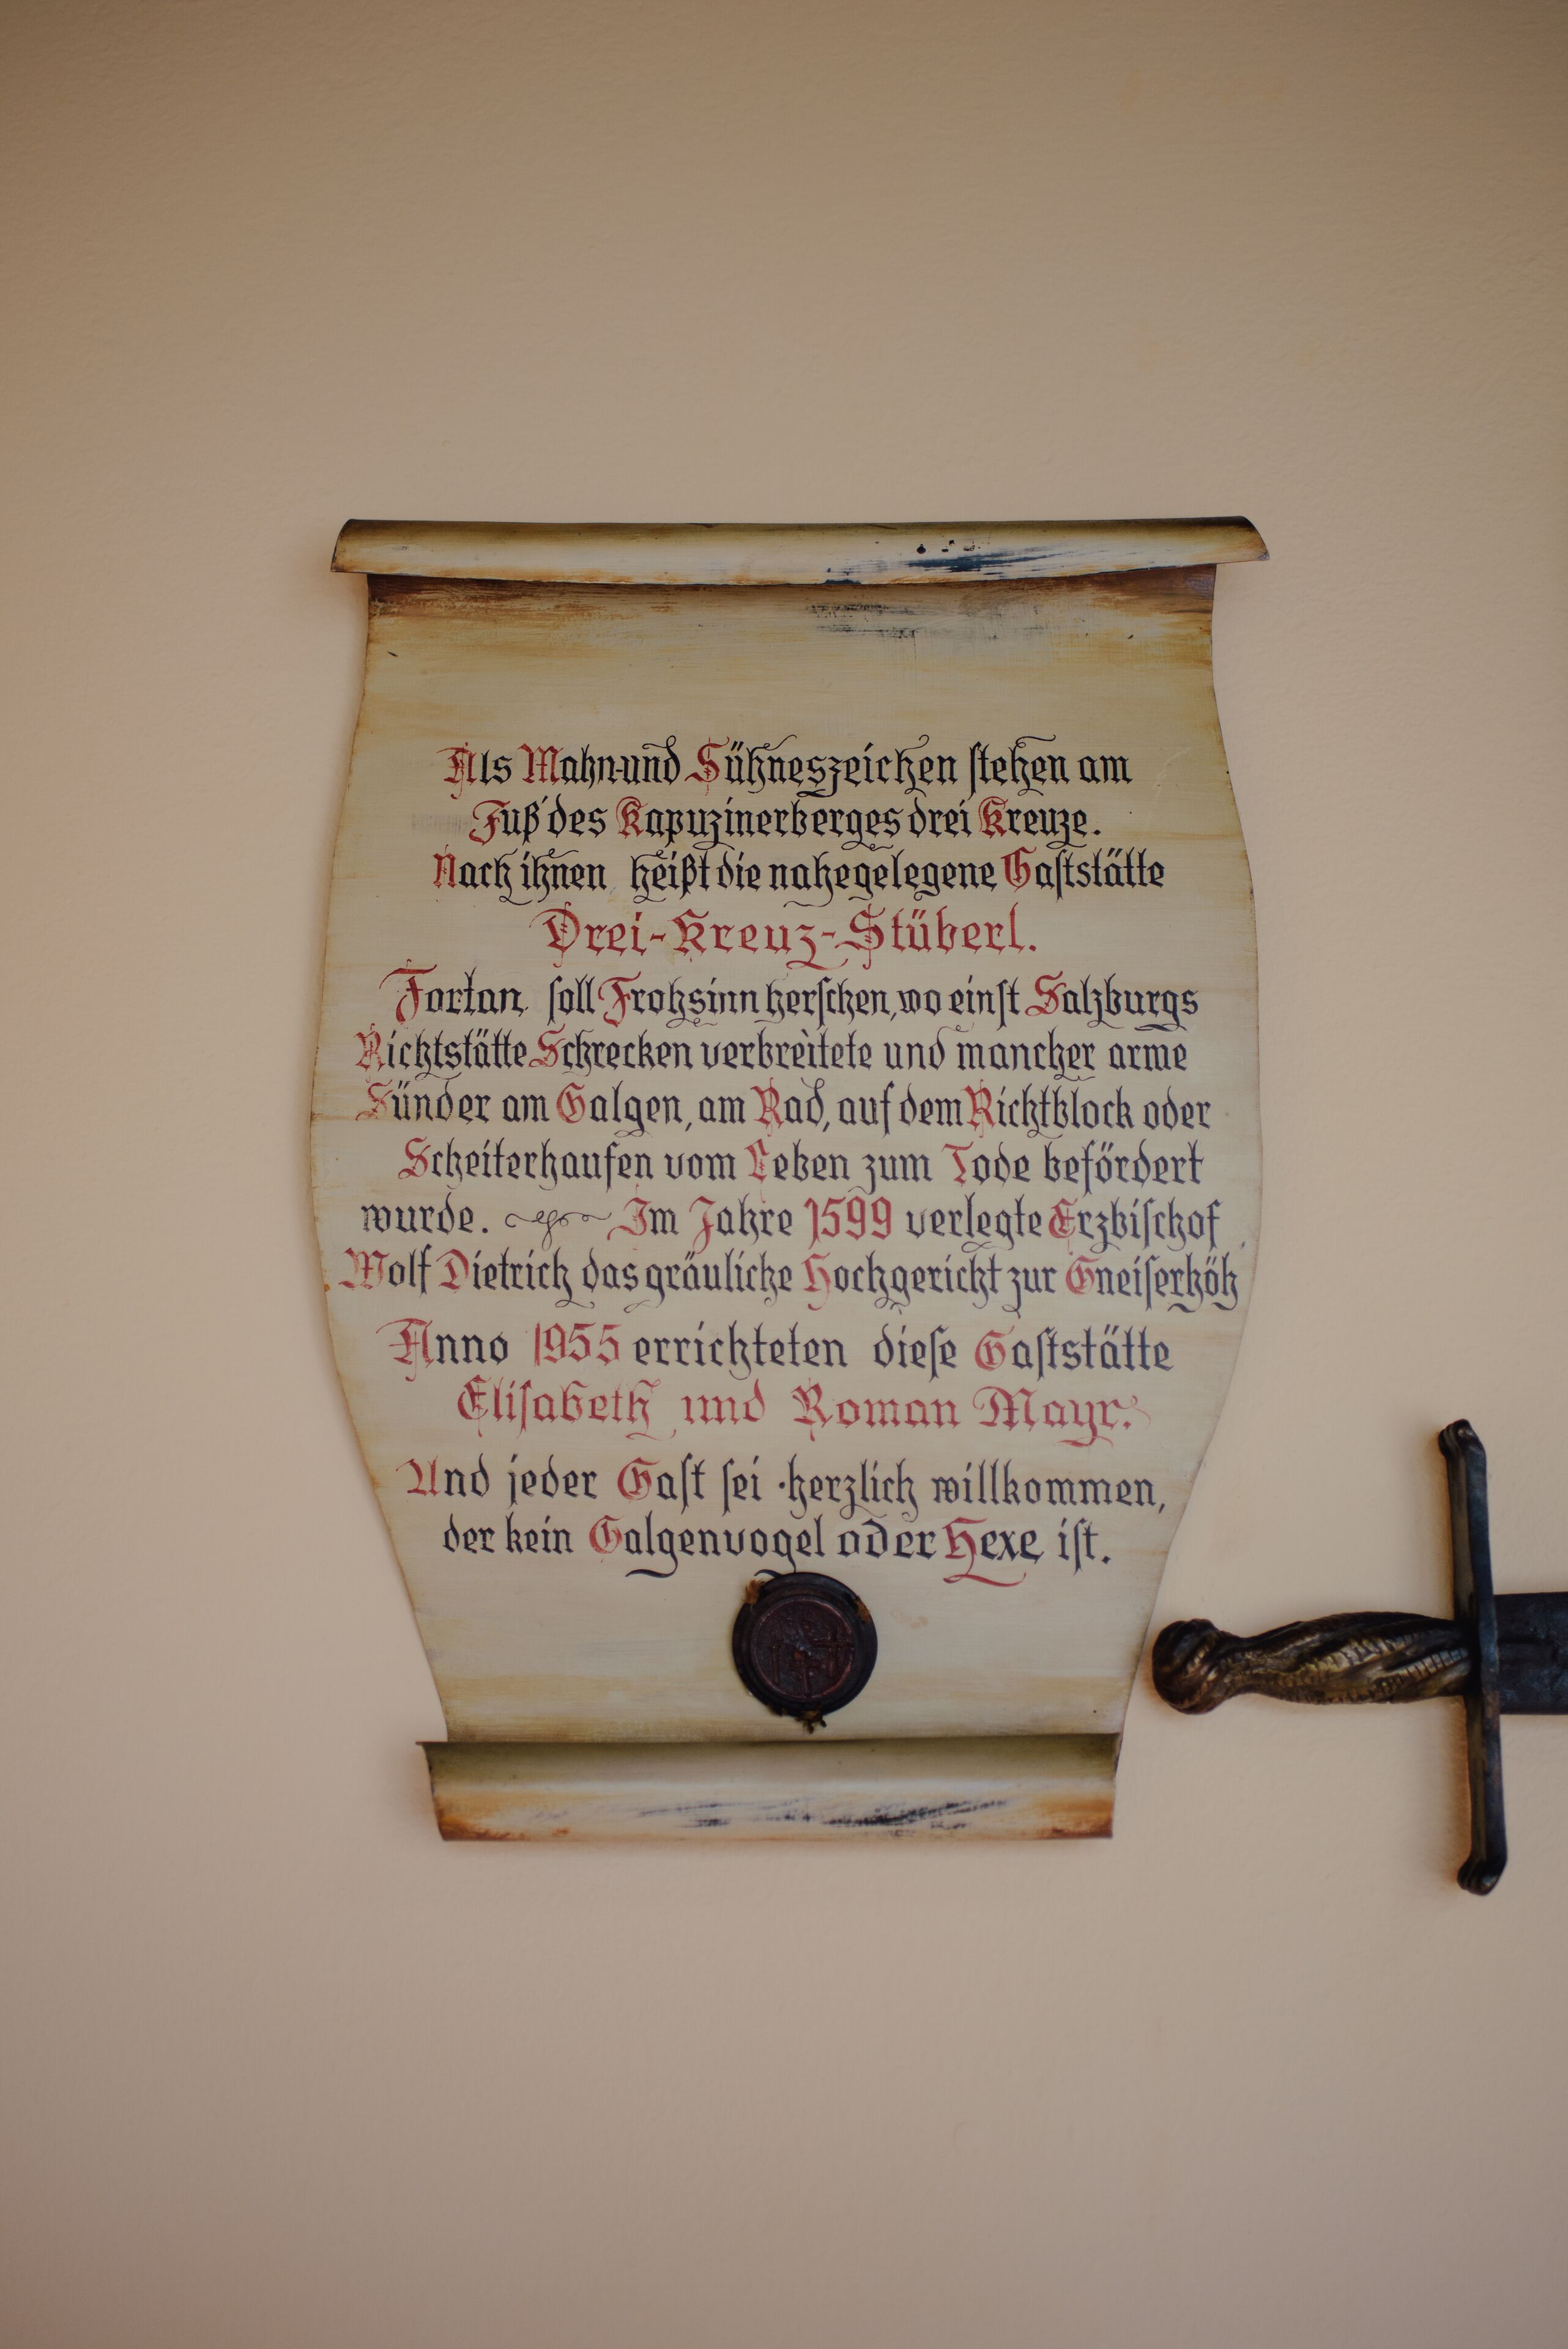 Als Mahn-und Sühneszeichen stehen am
Fuß des Kapuzinerberges drei Kreuze.
Nach ihnen heißt die nahegelegene Gaststätte
Drei-Kreuz-Stüberl.
Fortan soll Frohsinn herschen, wo einst Salzburgs
Richtstätte Schrecken verbreitete und mancher arme
Sünder am Galgen, am Rad, auf dem Richtblock oder
Scheiterhaufen vom Leben zum Tode befördert
wurde. Im Jahre 1599 verlegte Erzbischof
Wolf Dietrich das gräuliche Hochgericht zur Gneiserhöh
Anno 1955 errichteten diese Gaststätte
Elisabeth und Roman Mayr.
Und jeder Gast sei herzlich willkommen,
der kein Galgenvogel oder Hexe ist.